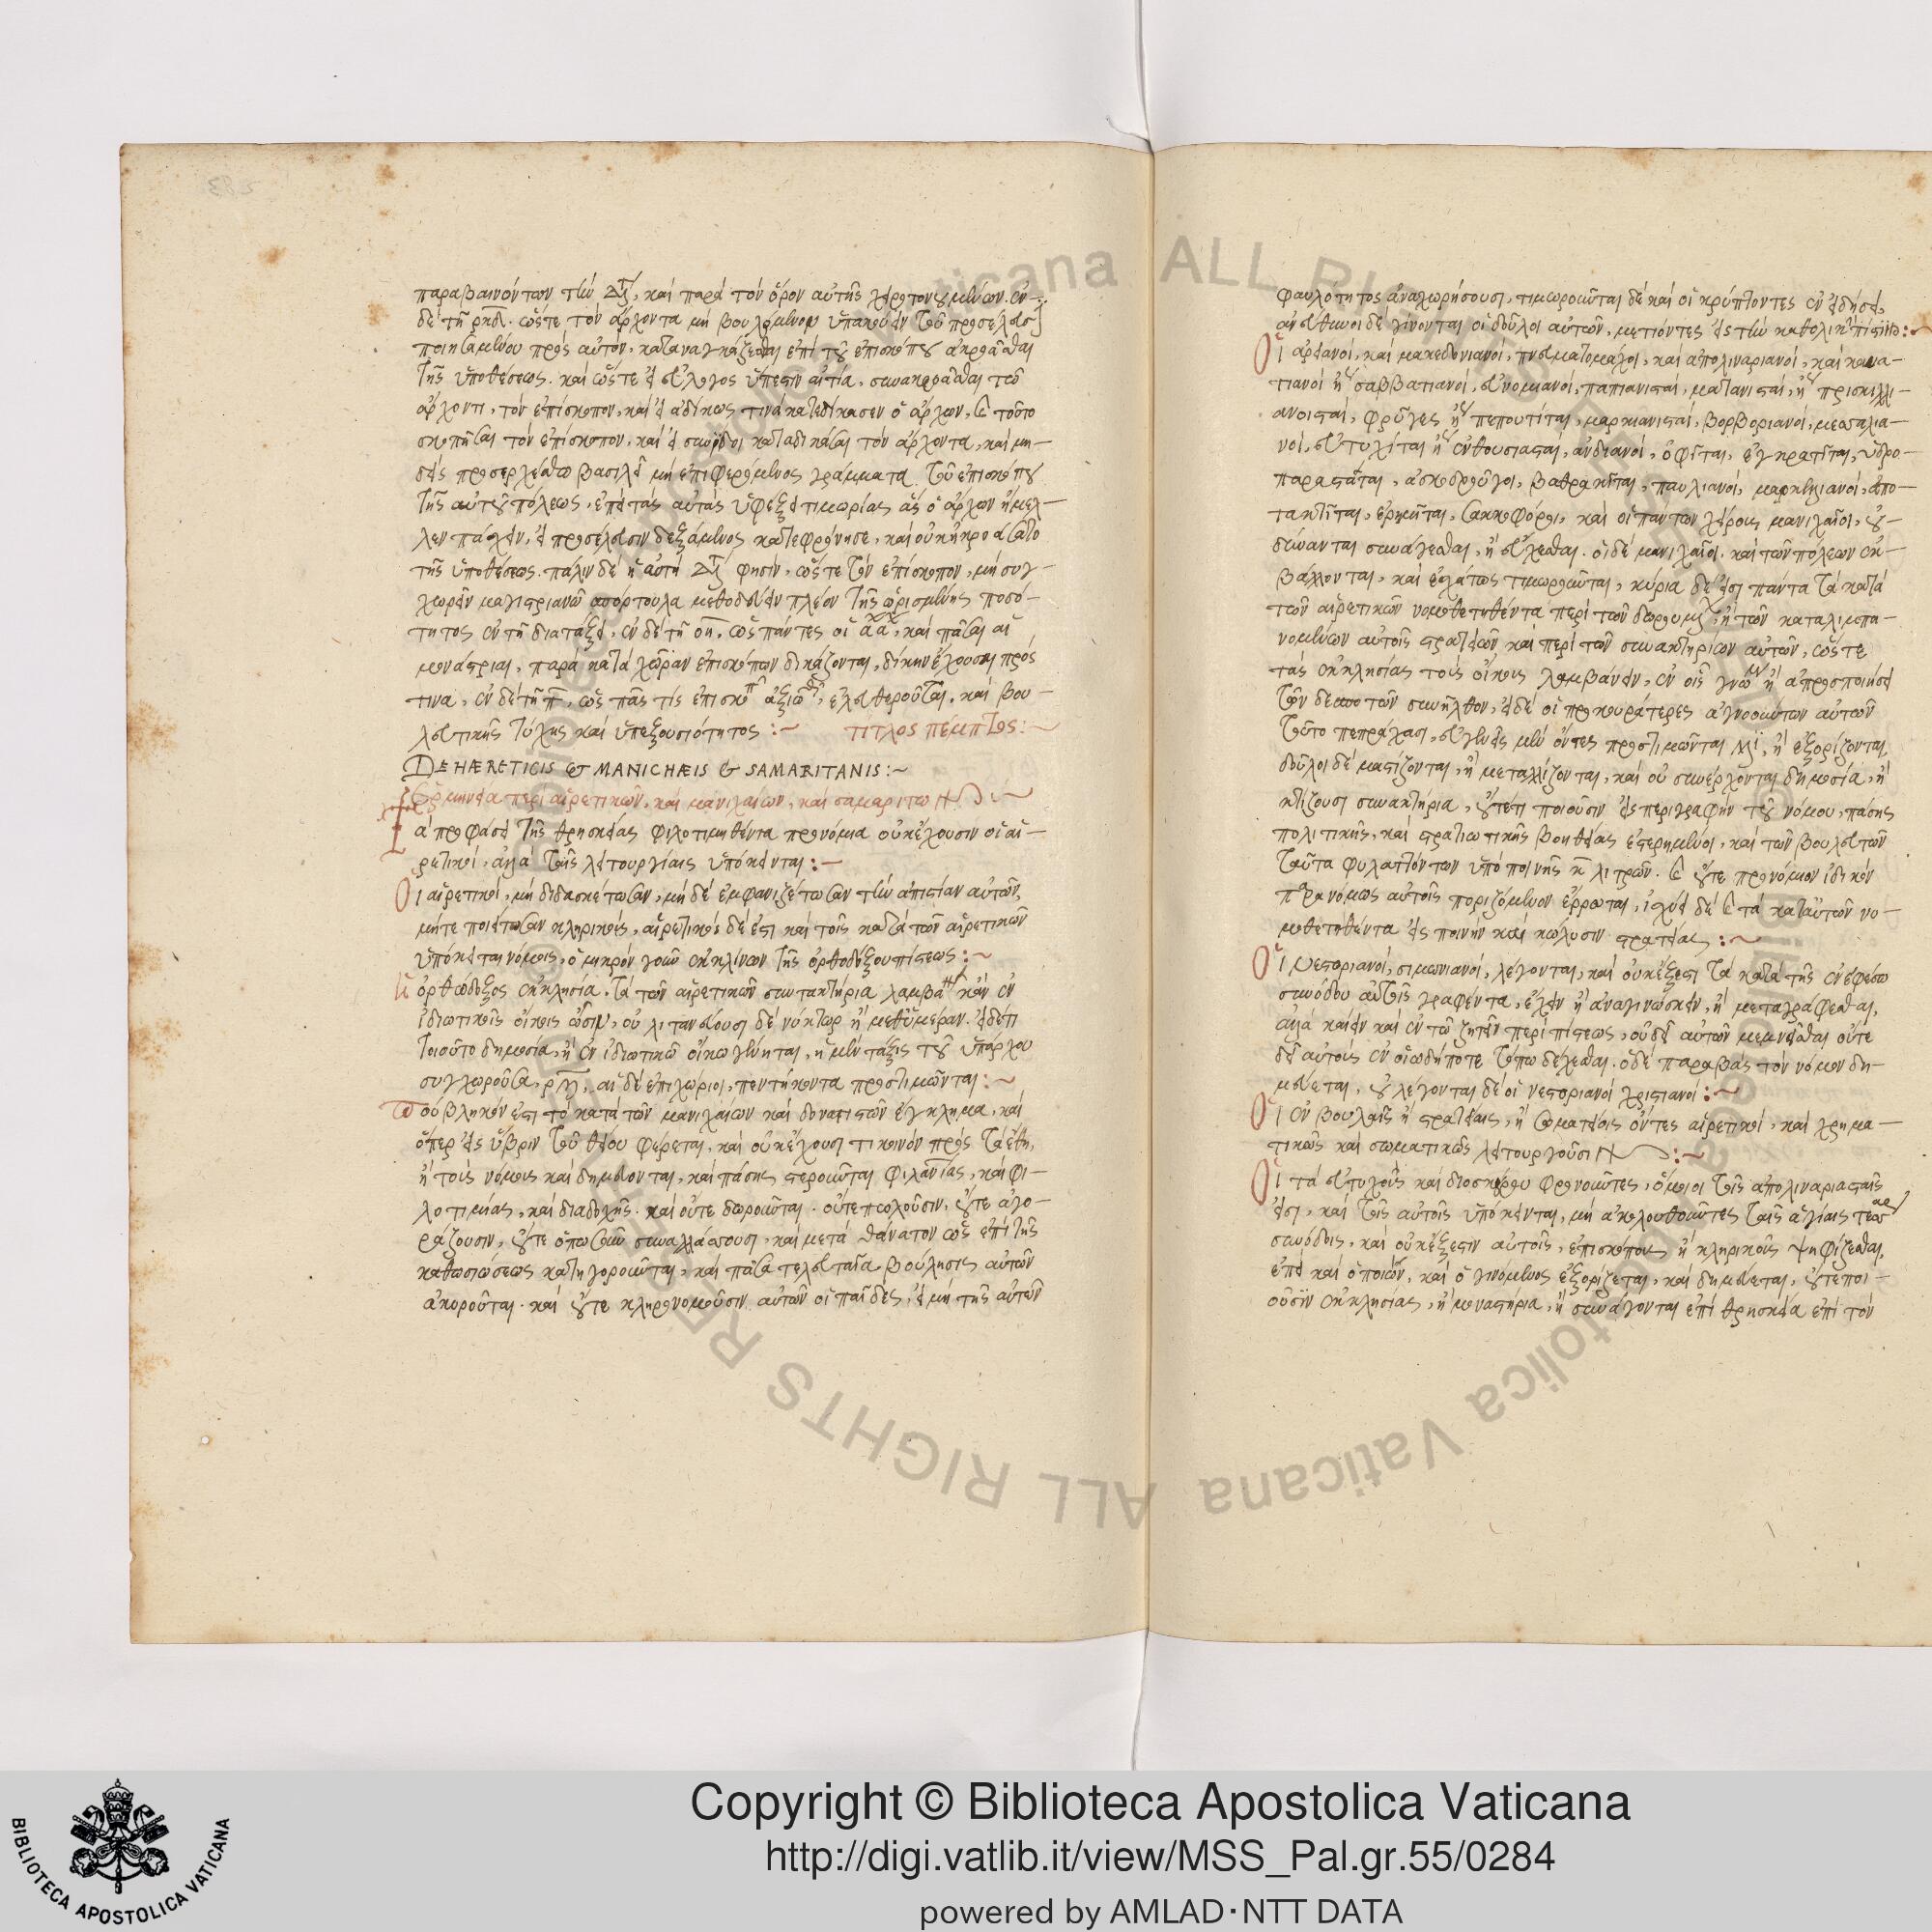 παραβαινόντων τὴν διάταξιν, καὶ παρὰ τὸν ὅρον αὐτῆς χειροτονουμένων. ἐν
δὲ τῇ ρκδ. ὥστε τὸν ἄρχοντα μὴ βουλόμενον ὑπακούειν τοῦ προσέλευσιν
ποιησαμένου πρὸς αὐτὸν, καταναγκάζεσθαι ἐπὶ τοῦ ἐπισκόπου ἀκροᾶσθαι
τῆς ὑποθέσεως. καὶ ὥστε εἰ εὔλογος ὕπεστιν αἰτία, συνακροᾶσθαι τῷ
ἄρχοντι, τὸν ἐπίσκοπον, καὶ εἰ ἀδίκως τινὰ κατεδίκασεν ὁ ἄρχων, καὶ τοῦτο
σκοπῆσαι τὸν ἐπίσκοπον, καὶ εἰ συνίδοι καταδικάσαι τὸν ἄρχοντα, καὶ μη-
δεὶς προσερχέσθω βασιλεῖ μὴ ἐπιφερόμενος γράμματα τοῦ ἐπισκόπου
τῆς αὐτοῦ πόλεως, ἐπεὶ τὰς αὐτὰς ὑφέξει τιμωρίας ἃς ὁ ἄρχων ἤμελ-
λεν πάσχειν, εἰ προσέλευσιν δεξάμενος κατεφρόνησε, καὶ οὐκ ἠκροάσατο
τῆς ὑποθέσεως. πάλιν δὲ ἡ αὐτὴ φησὶν, ὥστε τὸν ἐπίσκοπον, μὴ συγ-
χωρεῖν μαγιστριανῷ σπόρτουλα μεθοδεύειν πλέον τῆς ὡρισμένης ποσό-
τητος ἐν τῇ διατάξει, ἐν δὲ τῇ οη. ὡς πάντες οἱ καὶ πᾶσαι αἱ
μονάστριαι, παρὰ κατὰ χώραν ἐπισκόπων δικάζονται, δίκην ἔχουσαι πρός
τινα, ἐν δὲ τῇ π, ὡς πᾶς τις ἐπισκοπῆς ἀξιωθεὶς, ἐλευθεροῦται. καὶ βου-
λευτικῆς τύχης καὶ ὑπεξουσιότητος :~ τίτλος πέμπτος:~
DE HÆRETICIS & MANICHÆIS & SAMARITANIS:~
Ἑρμηνεία περὶ αἱρετικῶν, καὶ μανιχαίων, καὶ σαμαριτῶν :~
Τὰ προφάσει τῆς θρησκείας φιλοτιμηθέντα προνόμια οὐκ ἔχουσιν οἱ αἱ-
ρετικοί, ἀλλὰ ταῖς λειτουργίαις ὑπόκεινται:~
Οἱ αἱρετικοί, μὴ διδασκέτωσαν, μὴ δὲ ἐμφανιζέτωσαν τὴν ἀπιστίαν αὐτῶν,
μήτε ποιείτωσαν κληρικοὺς, αἱρετικὸς δέ ἐστι καὶ τοῖς κατὰ τῶν αἱρετικῶν
ὑπόκειται νόμοις, ὁ μικρὸν γοῦν ἐκκλίνων τῆς ὀρθοδόξου πίστεως:~
Ἡ ὀρθόδοξος ἐκκλησία. τὰ τῶν αἱρετικῶν συνακτήρια λαμβάνει κἂν ἐν
ἰδιωτικοῖς οἴκοις ὦσιν, οὐ λιτανεύουσι δὲ νύκτωρ ἢ μεθ' ἡμέραν. εἰ δέ τι
τοιοῦτο δημοσία, ἢ ἐν ἰδιωτικῷ οἴκῳ γένηται, ἡ μὲν τάξις τοῦ ὑπάρχου
συγχωροῦσα, αἱ δὲ ἐπιχώριοι, πεντήκοντα προστιμῶνται:~
Πούβλικόν ἐστι τὸ κατὰ τῶν μανιχαίων καὶ δονατιστῶν ἔγκλημα, καὶ
ὅπερ εἰς ὕβριν τοῦ θείου φέρεται, καὶ οὐκ ἔχουσί τι κοινὸν πρὸς τὰ ἔθη,
ἢ τοὺς νόμους καὶ δημεύονται, καὶ πάσης στεροῦνται καὶ φι-
λοτιμίας, καὶ διαδοχῆς. καὶ οὔτε δωροῦνται. οὔτε πωλοῦσιν, οὔτε ἀγο-
ράζουσιν, οὔτε ὁπωσοῦν συναλλάσσουσι, καὶ μετὰ θάνατον ὡς ἐπὶ τῆς
καθωσιώσεως κατηγοροῦνται, καὶ πᾶσα τελευταία βούλησις αὐτῶν
ἀκυροῦται. καὶ οὔτε κληρονομοῦσιν αὐτῶν οἱ παῖδες, εἰ μὴ τῆς αὐτῶν
φαυλότητος ἀναχωρήσουσι, τιμωροῦνται δὲ καὶ οἱ κρύπτοντες ἐν εἰδήσει,
ἀνεύθυνοι δὲ γίνονται οἱ δοῦλοι αὐτῶν, μετιόντες εἰς τὴν καθολικὴν πίστιν:~
Οἱ ἀρειανοί, καὶ μακεδονιανοί, πνευματομάχοι, καὶ ἀπολιναριανοί, καὶ
τιανοὶ ἤτοι σαββατιανοί, εὐνομιανοί, παπιανισταί, ματανισταί, ἤτοι πρισκιλλι-
ανισταί, φρύγες ἤτοι πεπουζίται, μαρκιανισταί, βορβοριανοί, μεσσαλια-
νοί, εὐτυχῖται ἤτοι ἐνθουσιασταί, αὐδιανοί, ὀφῖται, ἐγκρατῖται, ὑδρο-
παραστάται, ἀσκοδροῦγοι, βαθρακῖται, παυλιανοί, μαρκελλιανοί, ἀπο-
τακτῖται, ἐρημῖται, σακκοφόροι, καὶ οἱ πάντων χείρους μανιχαῖοι, οὐ
δύνανται συνάγεσθαι, ἢ εὔχεσθαι. οἱ δὲ μανιχαῖοι. καὶ τῶν πόλεων ἐκ-
βάλλονται, καὶ ἐσχάτως τιμωροῦνται, κύρια δέ εἰσι πάντα τὰ κατὰ
τῶν αἱρετικῶν νομοθετηθέντα περὶ τῶν δωρουμένων ἢ τῶν καταλιμπα-
νομένων αὐτοῖς στρατειῶν καὶ περὶ τῶν συνακτηρίων αὐτῶν, ὥστε
τὰς ἐκκλησίας τοὺς οἴκους λαμβάνειν, ἐν οἷς γνώμῃ ἢ ἀπροσποιήσει
τῶν δεσποτῶν συνῆλθον, εἰ δὲ οἱ προκουράτερες ἀγνοούντων αὐτῶν
τοῦτο πεπράχασι, εὐγενεῖς μὲν ὄντες προστιμῶνται ἢ ἐξορίζονται,
δοῦλοι δὲ μαστίζονται, ἢ μεταλλίζονται, καὶ οὐ συνέρχονται δημοσία, ἢ
κτίζουσι συνακτήρια, οὔτε τι ποιοῦσιν εἰς περιγραφὴν τοῦ νόμου, πάσης
πολιτικῆς, καὶ στρατιωτικῆς βοηθείας ἐστερημένοι, καὶ τῶν βουλευτῶν
ταῦτα φυλαττόντων ὑπὸ ποινῆς κ λιτρῶν. καὶ οὔτε προνόμιον ἰδικὸν
παρανόμως αὐτοῖς ποριζόμενον ἔρρωται, ἰσχύει δὲ καὶ τὰ κατ' αὐτῶν νο-
μοθετηθέντα εἰς ποινὴν καὶ κώλυσιν στρατείας :~
Οἱ νεστοριανοί, σιμωνιανοί, λέγονται, καὶ οὐκ ἔξεστι τὰ κατὰ τῆς ἐν ἐφέσῳ
συνόδου αὐτοῖς γραφέντα, ἔχειν ἢ ἀναγινώσκειν, ἢ μεταγράφεσθαι,
ἀλλὰ καίειν καὶ ἐν τῷ ζητεῖν περὶ πίστεως, οὐδὲ αὐτῶν μεμνῆσθαι οὔτε
δεῖ αὐτοὺς ἐν οἱῳδήποτε τόπῳ δέχεσθαι. ὁ δὲ παραβὰς τὸν νόμον δη-
μεύεται, οὐ λέγονται δὲ οἱ νεστοριανοὶ χριστιανοί :~
Οἱ ἐν βουλαῖς ἢ στρατείαις, ἢ σωματείοις ὄντες αἱρετικοί, καὶ χρημα-
τικῶς καὶ σωματικῶς λειτουργοῦσιν :~
Οἱ τὰ εὐτυχοῦς καὶ διοσκόρου φρονοῦντες, ὅμοιοι τοῖς ἀπολιναριασταῖς
εἰσι, καὶ τοῖς αὐτοῖς ὑπόκεινται, μὴ ἀκολουθοῦντες ταῖς ἁγίαις τέσσαρσι
συνόδοις, καὶ οὐκ ἔξεστιν αὐτοῖς, ἐπισκόπους ἢ κληρικοὺς ψηφίζεσθαι,
ἐπεὶ καὶ ὁ ποιῶν, καὶ ὁ γινόμενος ἐξορίζεται, καὶ δημεύεται, οὔτε ποι-
οῦσιν ἐκκλησίας, ἢ μοναστήρια, ἢ συνάγονται ἐπὶ θρησκείᾳ ἐπὶ τὸν
Copyright © Biblioteca Apostolica Vaticana
http://digi.vatlib.it/view/MSS_Pal.gr.55/0284
powered by AMLAD·NTT DATA
BIBLIOTECA APOSTOLICA VATICANA